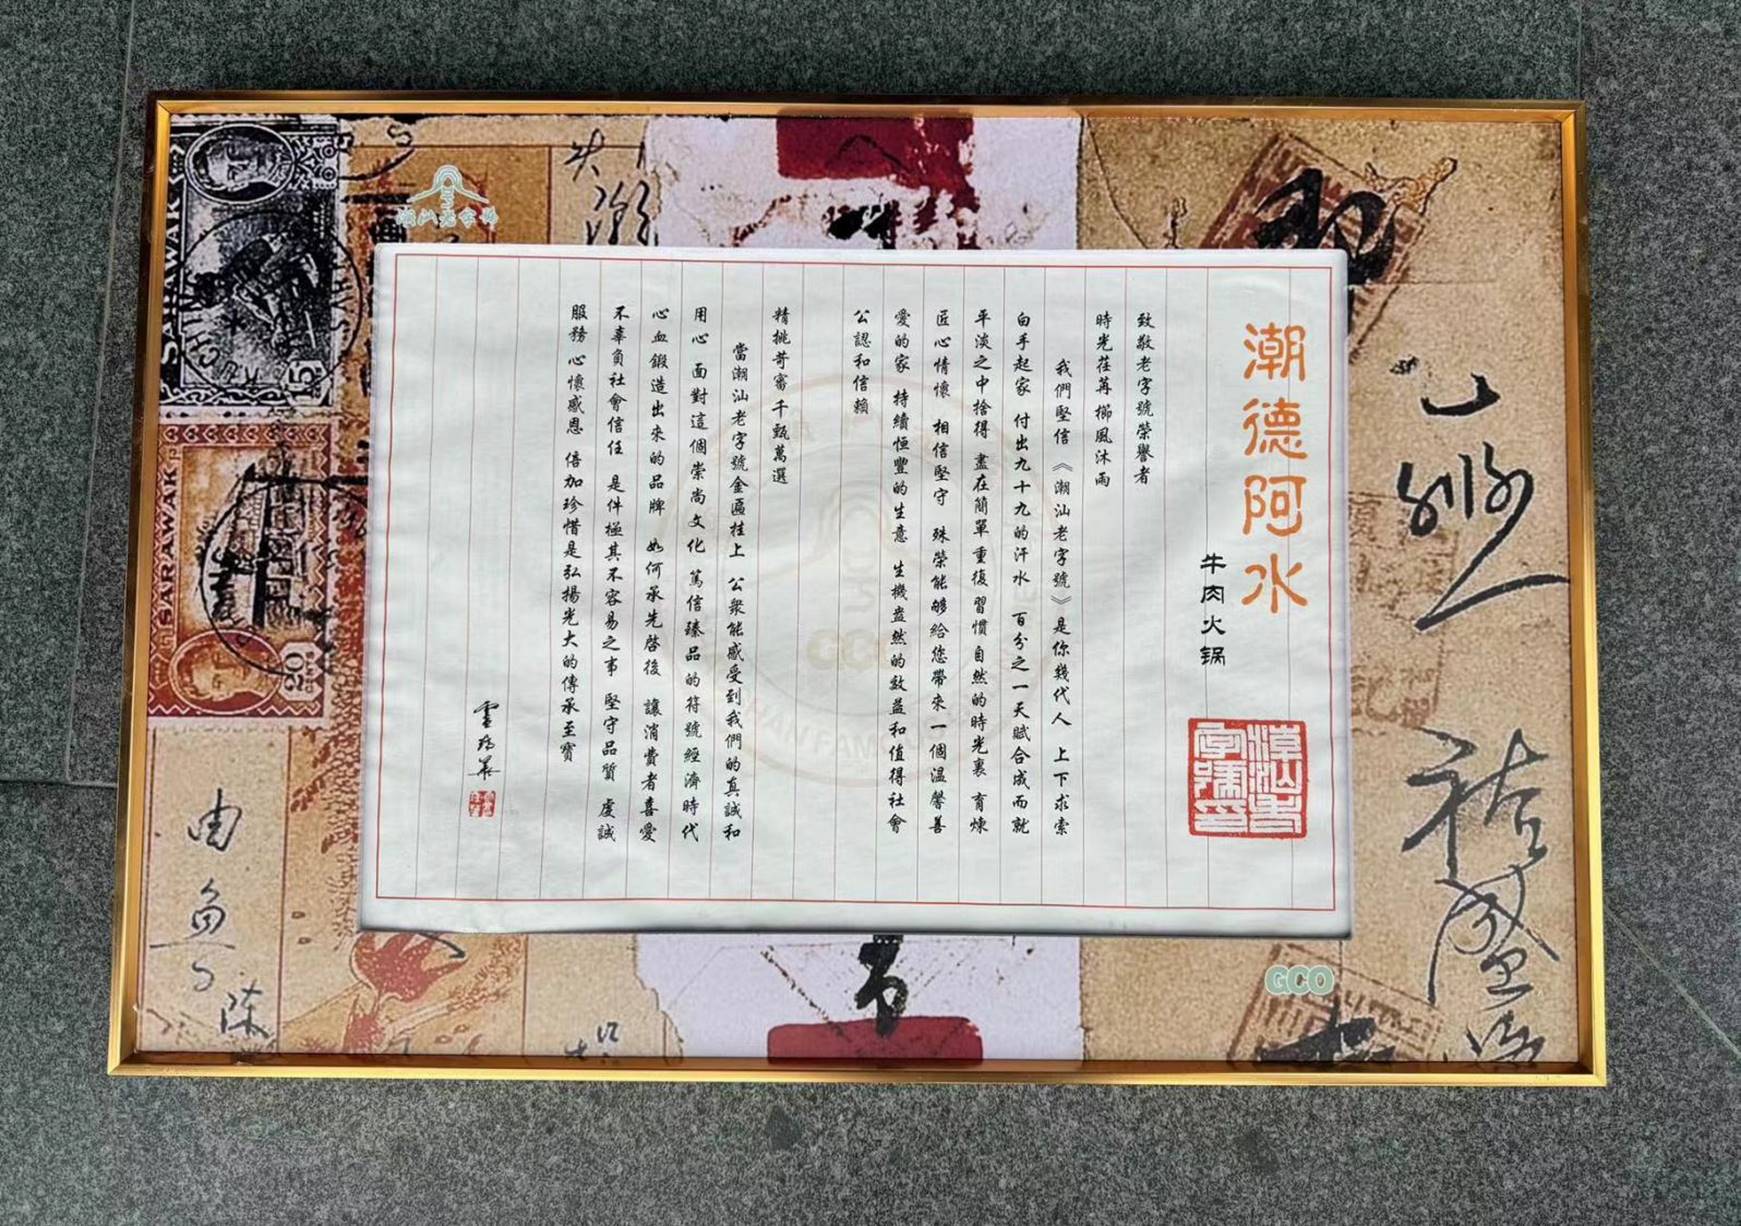 潮德阿水
牛肉火锅
潮汕老字號印
致敬老字號榮譽者
時光荏苒櫛風沐雨
我們堅信《潮汕老字號》是你幾代人 上下求索
白手起家 付出九十九的汗水 百分之一天賦合成而就
平淡之中捨得 盡在簡單重復習慣自然的時光裏 育煉
匠心情懷 相信堅守 殊榮能够給您帶來一個温馨善
愛的家 持續恒豐的生意 生機盎然的效益和值得社會
公認和信賴
精挑苛審千甄萬選
當潮汕老字號金匾挂上 公衆能感受到我們的真誠和
用心 面對這個崇尚文化 篤信臻品的符號經濟時代
心血鍛造出來的品牌 如何承先啓後 讓消費者喜愛
不辜負社會信任 是件極其不容易之事 堅守品質 虔誠
服務 心懷感恩 倍加珍惜是弘揚光大的傳承至寶
SARAWAK
15
SARAWAK
20
GCO
GCO
祐盛
由
陈